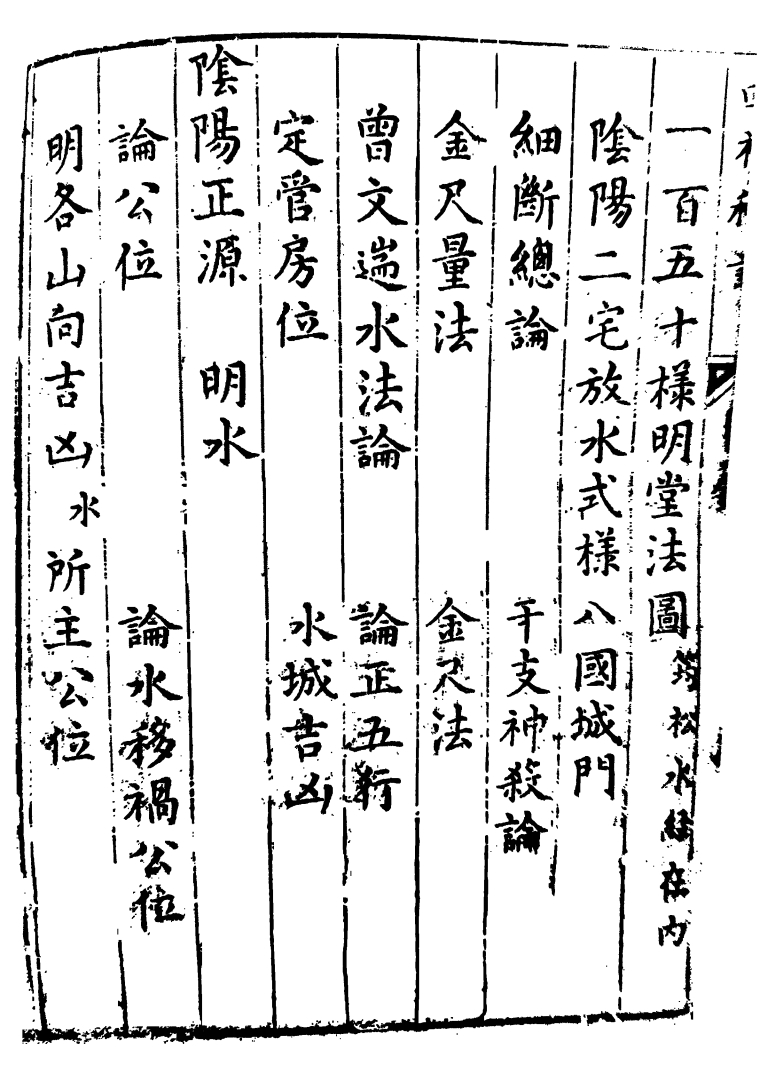 一百五十樣明堂法圖 筠松水經在內
陰陽二宅放水式樣 八國城門
細斷總論 干支神殺論
金尺量法 金尺法
曾文遄水法論 論正五行
定管房位 水城吉凶
陰陽正源 明水
論公位 論水移禍公位
明各山向吉凶水所主公位